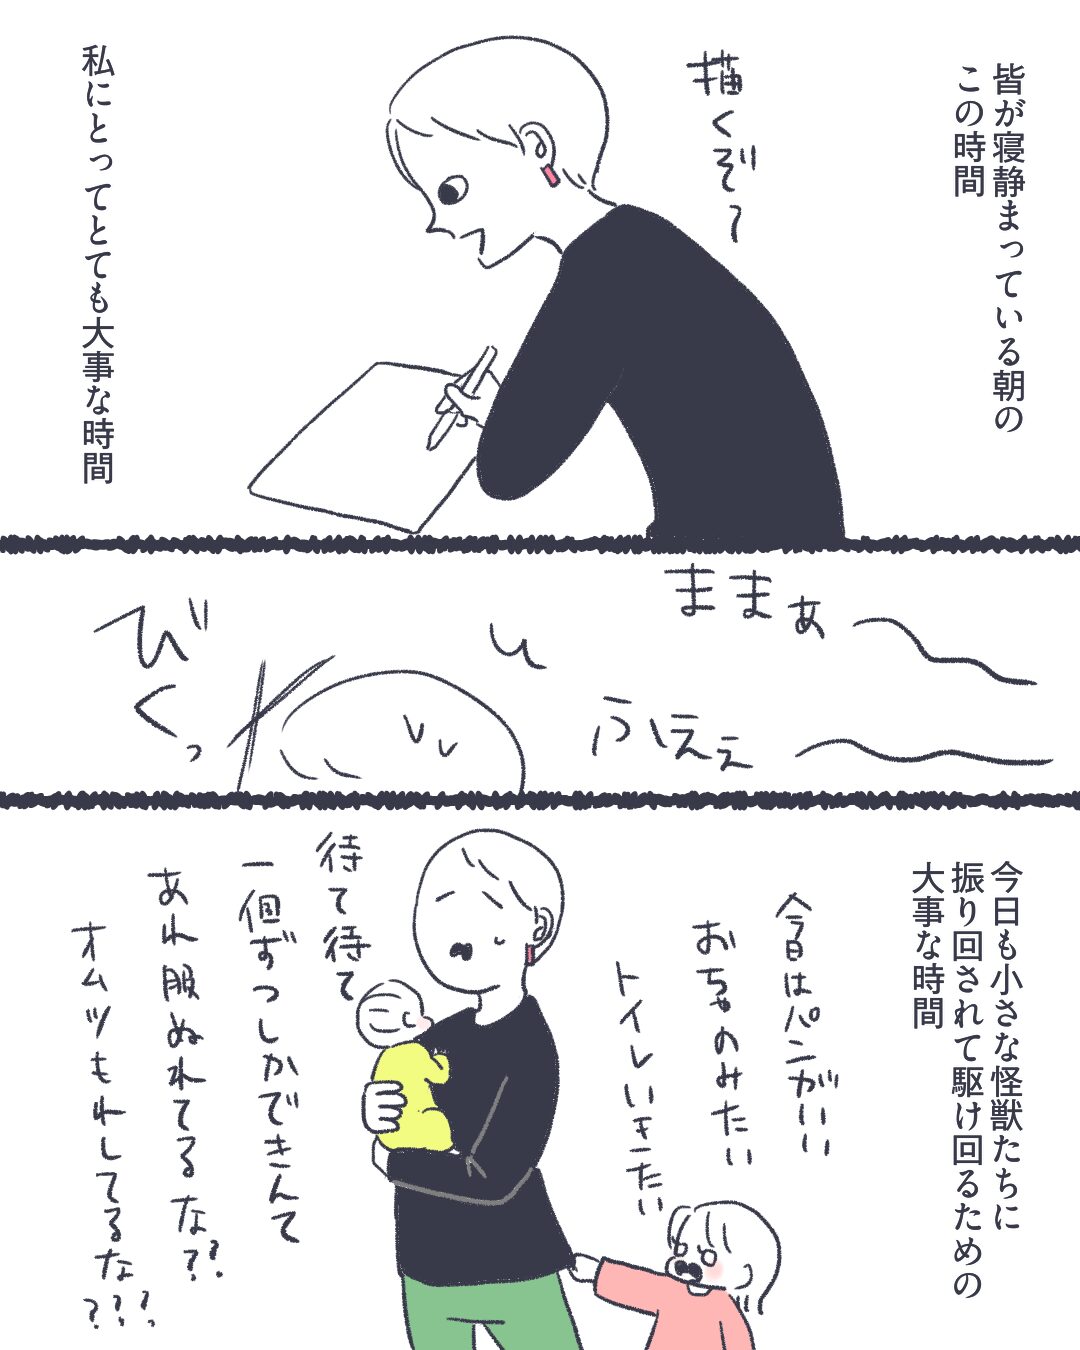 皆が寝静まっている朝の
この時間
描くぞ〜
私にとってとても大事な時間
ままぁ
ふえぇ
びくっ
今日も小さな怪獣たちに
振り回されて駆け回るための
大事な時間
今日はパンがいい
おちゃのみたい
トイレいきたい
待て待て
一個ずつしかできんて
あれ服ぬれてるな??
オムツもれしてるな???